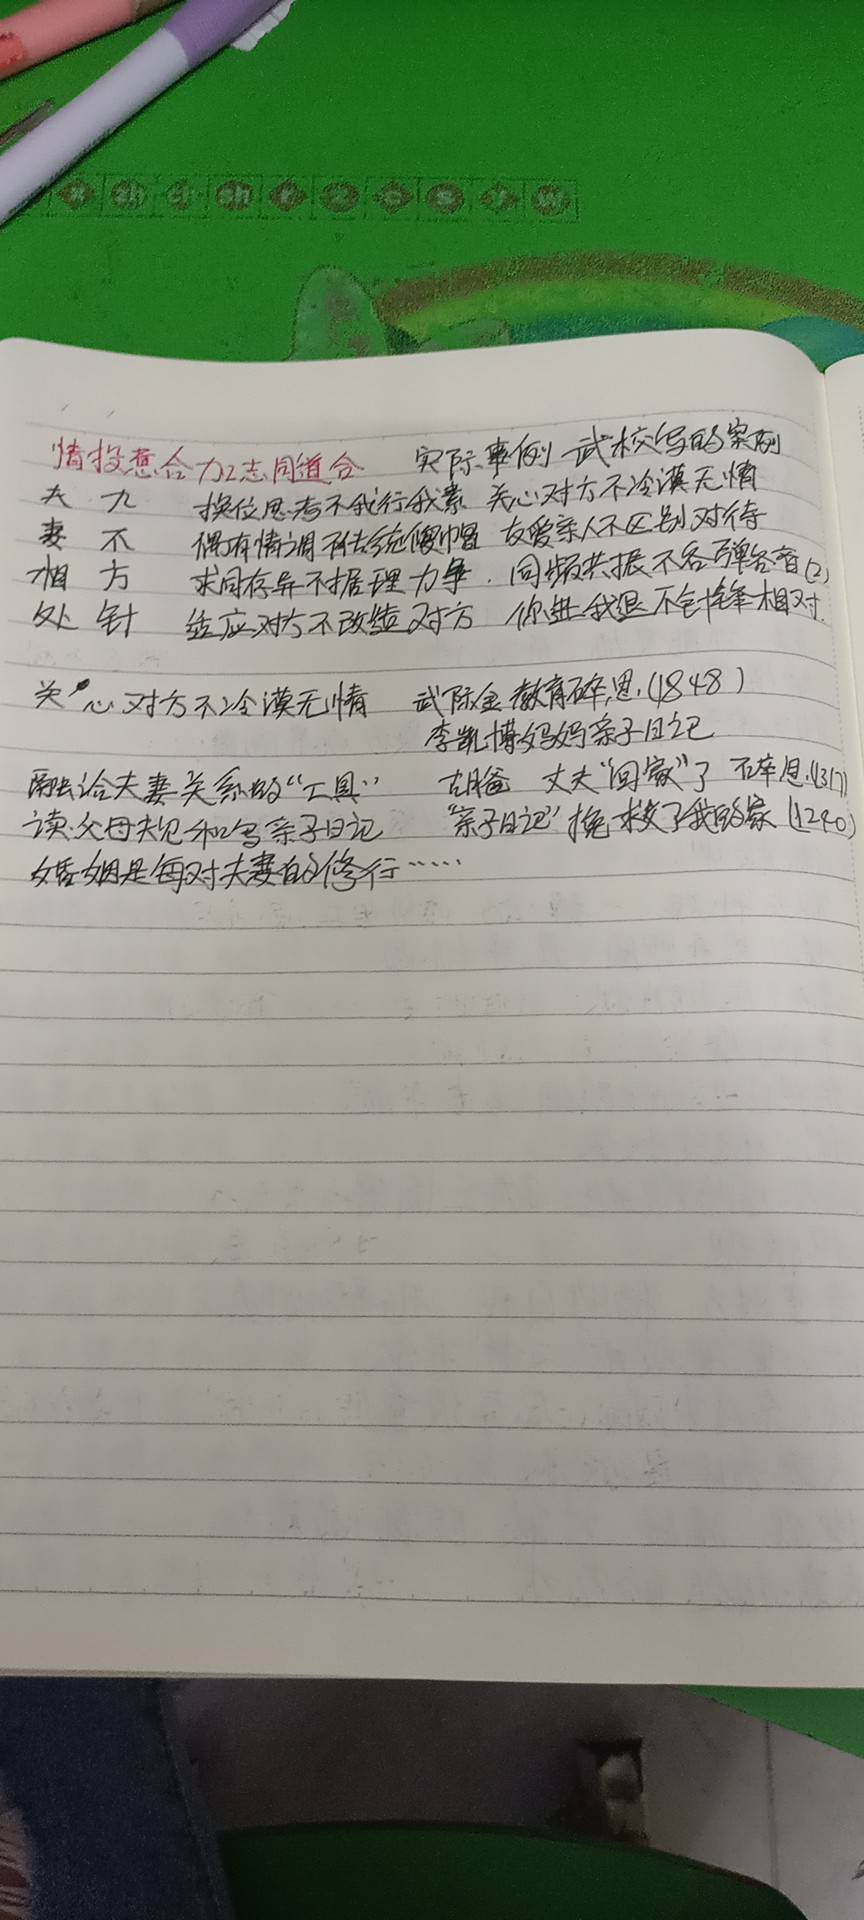 zh ch sh r z c s y w
情投意合 加 志同道合 实际事例 武校写的案例
夫 九 换位思考不我行我素 关心对方不冷漠无情
妻 不 偶有情调不传统 友爱亲人不区别对待
相 方 求同存异不据理力争. 同频共振不各弹各音(2)
处 针 适应对方不改造对方 你进我退不针锋相对.
关心对方不冷漠无情 武际金教育碎思.(1848)
李凯博妈妈亲子日记
夫妻关系的“工具” 胡爸 丈夫“回家”了 碎思.(1317)
读父母夫见和写亲子日记 “亲子日记”挽救了我的家 (1240)
婚姻是每对夫妻的修行……